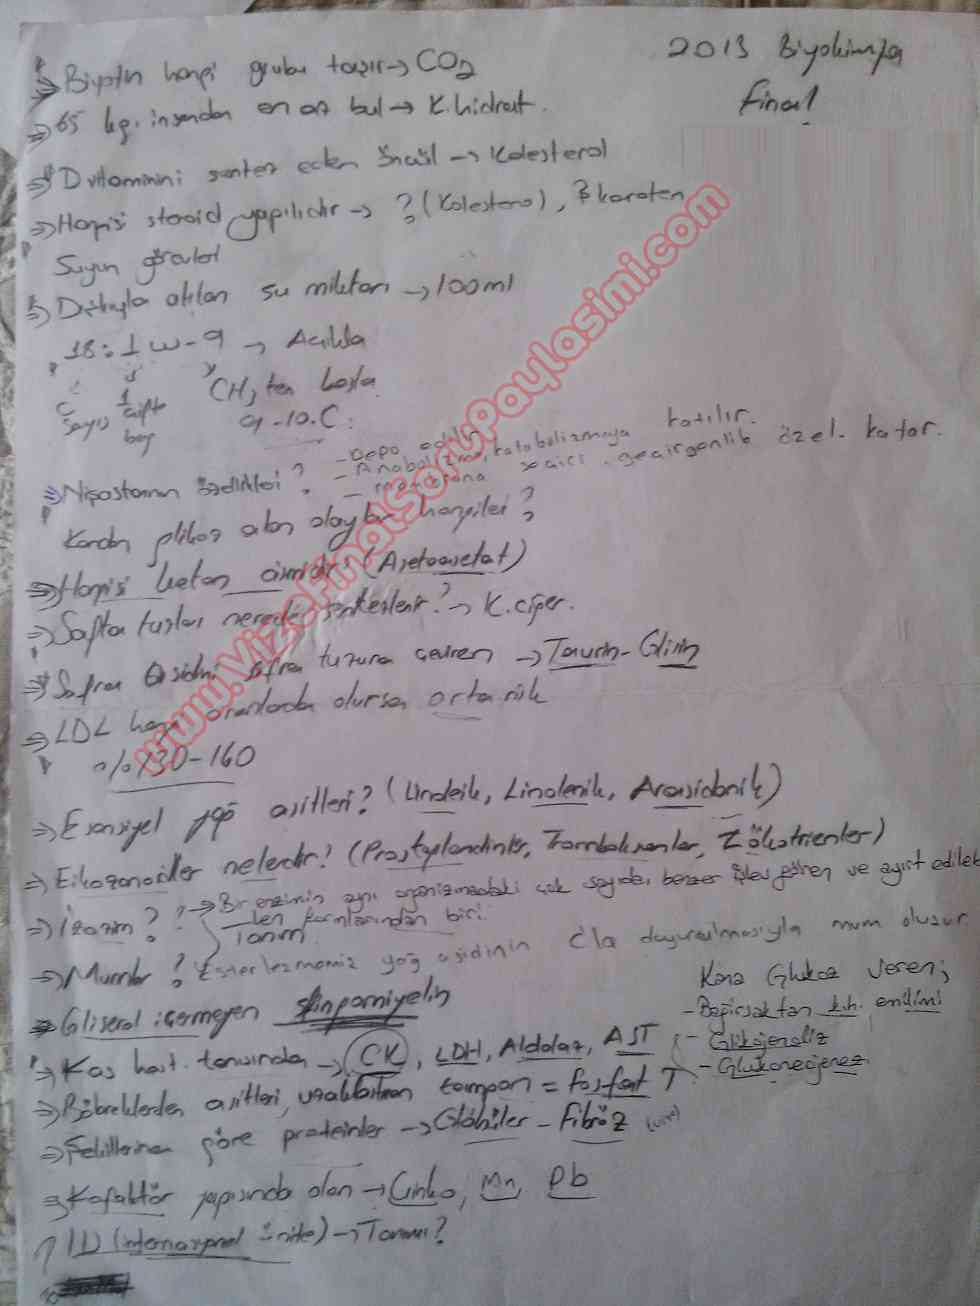 2013 Biyokimya
Final
⇒ Biyotin hangi grubu taşır → CO2
⇒ 65 kg. insandan en az bul → K.hidrat.
⇒ D vitaminini sentez eden öncül → Kolesterol
⇒ Hangisi steroid yapılıdır → ? (Kolesterol), B karoten
Suyun görevleri
⇒ Dışkıyla atılan su miktarı → 100ml
18:1 w-9 → Açıkla
C sayısı 1 çift bağ CH3 ten başla
9-10.C.
⇒ Nişastanın özellikleri?
- Depo edilir
- Anabolizma, katabolizmaya katılır.
- membrana seçici geçirgenlik özel. katar.
Kandan glikoz alan olaylar hangileri?
⇒ Hangisi keton cismidir? (Asetoasetat)
⇒ Safra tuzları nerede sentezlenir? → K.ciğer.
⇒ Safra asidini safra tuzuna çeviren → Taurin-Glisin
⇒ LDL hangi oranlarda olursa orta risk
% 130-160
⇒ Esansiyel yağ asitleri? (Linoleik, Linolenik, Araşidonik)
⇒ Eikozanoidler nelerdir? (Prostglandinler, Tromboksanlar, Lökotrienler)
⇒ İzozim? → Bir enzimin aynı organizmadaki çok sayıda, benzer işlev gören ve ayırt edilebi
len formlarından biri.
Tanım
⇒ Mumlar? Esterleşmemiş yağ asidinin Cla doyurulmasıyla mum oluşur.
⇒ Gliserol içermeyen sfingomiyelin
⇒ Kas hast. tanısında → CK, LDH, Aldolaz, AST
⇒ Böbreklerden asitleri uzaklaştıran tampon = fosfat T
Kana Glukoz veren;
- Bağırsaktan k.h. emilimi
- Glikojenoliz
- Glukoneojenez
⇒ Şekillerine göre proteinler → Globüler - Fibröz
⇒ Kofaktör yapısında olan → Çinko, Mn, Pb
IU (internasyonel ünite) → Tanımı?
www.VizeFinalSoruPaylasimi.com